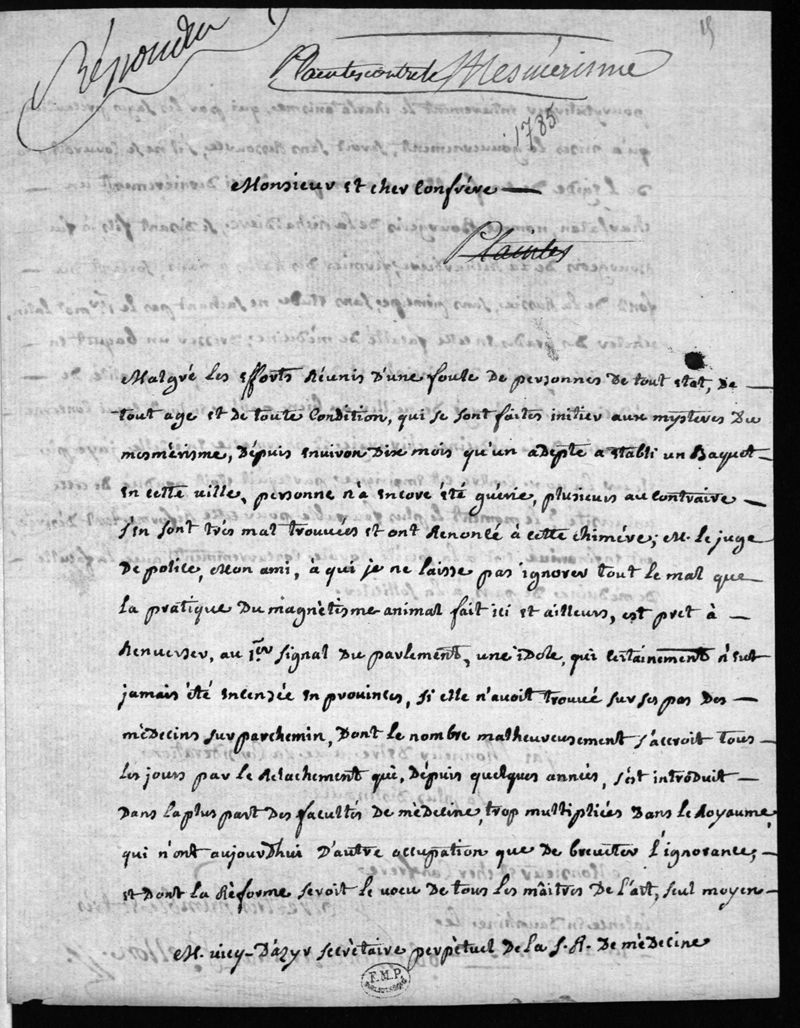 15
Répondu
Plaintes contre le Mesmérisme
1785
Monsieur et cher Confrére
Plaintes
Malgré les efforts réunis d'une foule de personnes de tout etat, de
tout age et de toute condition, qui se sont faites initier aux mysteres du
mesmérisme, dépuis environ dix mois qu'un adepte a etabli un Baquet
en cette ville, personne n'a encore été guérie, plusieurs au contraire
s'en sont trés mal trouvées et ont renoncé à cette chimére; M. le juge
de police, mon ami, à qui je ne laisse pas ignorer tout le mal que
la pratique du magnètisme animal fait ici et ailleurs, est pret à
renverser, au 1er signal du parlement, une idole, qui certainement n'eut
jamais été encensée en provinces, si elle n'avoit trouvé sur ses pas des
mèdecins sur parchemin, dont le nombre malheureusement s'accroit tous
les jours par le relachement qui, dépuis quelques années, s'est introduit
dans la plus part des facultés de mèdecine, trop multipliées dans le royaume,
qui n'ont aujourdhui d'autre occupation que de breveter l'ignorance,
et dont la rèforme seroit le voeu de tous les maîtres de l'art, seul moyen
M. vicq-d'azyr secrètaire perpètuel de la S. R. de mèdecine
F.M.P.